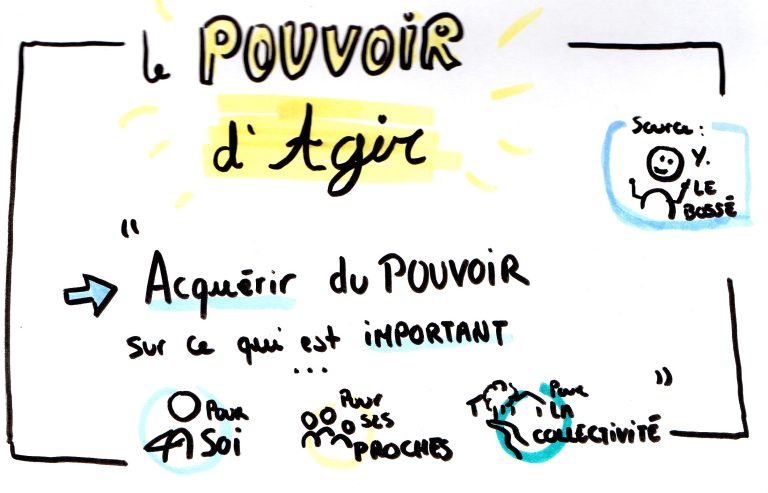 le POUVOIR
d'Agir
Source :
Y.
LE
BOSSÉ
"
Acquérir du POUVOIR
sur ce qui est iMPORTANT
...
POUR
SOi
Pour
SES
PROCHES
Pour
LA
COLLECTIVITÉ
"